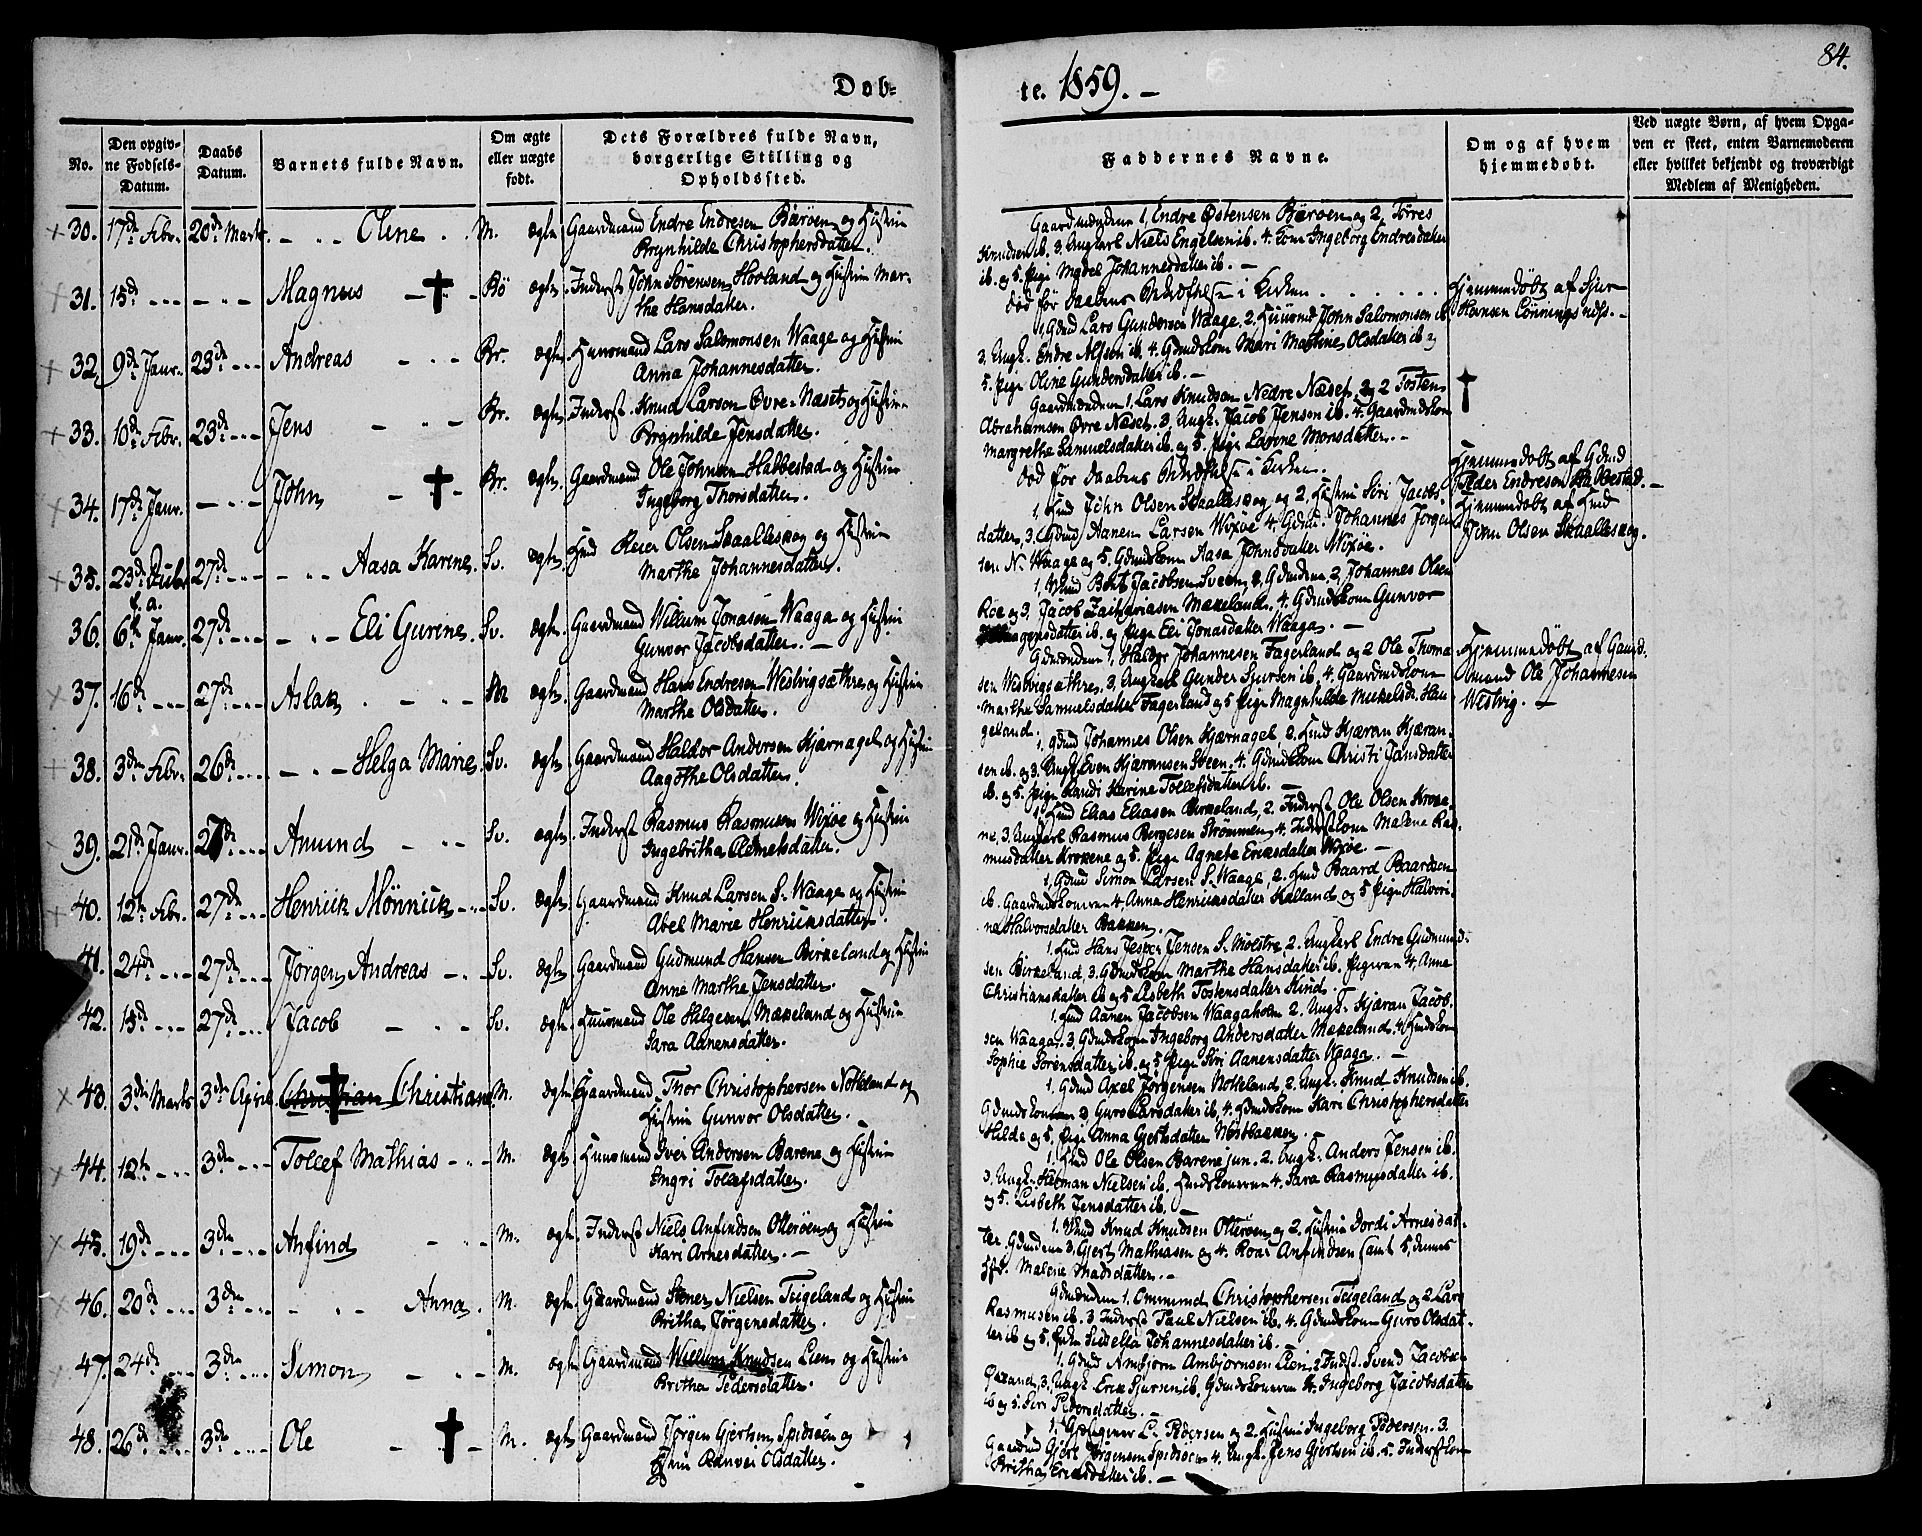 84.
Døb-
te. 1859. —
No.
Den opgiv-
ne Fødsels-
Datum.
Daabs
Datum.
Barnets fulde Navn.
Om ægte
eller uægte
født.
Dets Forældres fulde Navn,
borgerlige Stilling og
Opholdssted.
Faddernes Navne.
Om og af hvem
hjemmedøbt.
Ved uægte Børn, af hvem Opga-
ven er skeet, enten Barnemoderen
eller hvilket bekjendt og troværdigt
Medlem af Menigheden.
30. 17de Febr. 20de Marts Oline M. ægte Gaardmand Endre Endresen Børøen og Hustru
Brynhilde Christophersdatter.
Gaardmændene 1, Endre Østensen Børøen og 2, Tørres
Knudsen ib. 3. Ungkarl Niels Engelsen ib. 4. Kone Ingeborg Endresdatter
ib. og 5. Pige Johannesdatter ib. —
31. 15de Magnus Bø ægte Inderst John Sørensen Hovland og Hustru Mar-
the Hansdatter.
død før Daabens i Kirken
Hjemmedøbt af Sjur
Hansen Lønningsnæs. —
32. 9de Janr. 23de Andreas Br. ægte Huusmand Lars Salomonsen Waage og Hustru
Anna Johannesdatter.
1, Gmd Lars Gundersen Waage, 2. Huusmd John Salomonsen ib
3. Ungk. Endre Alfsen ib. 4. Gmdskone Mari Martine Olsdatter ib og
5. Pige Oline Gundersdatter ib. —
33. 10de Febr. 23de Jens Br. ægte Inderst Knud Larsen Øvre-Næset og Hustru
Brynhilde Jensdatter.
Gaardmændene 1. Lars Knudsen Nedre Næset, og 2 Tosten
Abrahamsen Øvre Næset. 3. Ungk. Jacob Jensen ib. 4. Gaardmdskone
Margrethe Samuelsdatter ib. og 5. Pige Lavine Monsdatter. —
34. 17de Janr. John Br. ægte Gaardmand Ole Johnsen Halbestad og Hustru
Ingeborg Thorsdatter.
død før Daabens i Kirken.
Hjemmedøbt af Gdmd
Peder Endresen Halbestad. —
35. 23de 27de Aasa Karine. Sv. ægte Hmd Reier Olsen Skaalleskog og Hustru
Marthe Johannesdatter.
1, Hmd John Olsen Skaalleskog og 2. Hustru Siri Jacobs-
datter, 3. Gdmd Aanen Larsen Wixøe 4. Gdmd. Johannes Jørgen-
sen N. Waage og 5. Gdmdskone Aasa Johnsdatter Wixøe.
Hjemmedøbt af Hmd
John Olsen Skaalleskog.
36. 6te Janr. 27de Eli Gurine. Sv. ægte Gaardmand Willum Jonasen Waaga og Hustru
Gunvor Jacobsdatter. —
1, Hmd Bent Jacobsen Sveen og Gdmdene, 2, Johannes Olsen
Røe og 3, Jacob Zachariasen Mækeland. 4. Gdmdskone Gunvor
ib. og Pige Eli Jonasdatter Waaga. —
37. 16de 27de Aslak M ægte Gaardmand Hans Endresen Westvigsæthre og Hustru
Marthe Olsdatter.
Gdmændene 1, Haldor Johannesen Fagerland og 2 Ole Thoma-
sen Westvigsæthre, 3. Ungkarl Gunder Sjursen ib. 4. Gaardmdskone
Marthe Samuelsdatter Fagerland og 5 Pige Magnhilde Mickelsdr. Hau-
geland.
Hjemmedøbt af Gaard-
mand Ole Johannesen
Westvig. —
38. 3die Febr. 26de Helga Marie. Sv. ægte Gaardmand Haldor Andersen Kjærnagel og Hustru
Aagothe Olsdatter.
1, Gdmd Johannes Olsen Kjærnagel 2. Hmd Kjæran Kjæran-
sen ib. og 3. Ungk. Even Kjæransen Steen. 4. Gdmdskone Christi Jansdatter
ib. og 5. Pige Randi Karine Tollefsdatter ib. —
39. 21de Janr. 27de Amund Sv. ægte Inderst Rasmus Rasmusen Wixøe og Hustru
Ingebritha Clemetsdatter.
1, Hmd Elias Eliasen Birkeland, 2. Inderst Ole Olsen Kroke-
ne, 3. Ungkarl Rasmus Børgesen Strømmen, 4. Inderstkone Malene Ras-
musdatter Krokene og 5. Pige Agnete Ericksdatter Wixøe —
40. 12te Febr. 27de Henrick Mønnick Sv. ægte Gaardmand Knud Larsen S. Waage og Hustru
Abel Marie Henricksdatter.
1, Gdmd Simon Larsen S. Waage, 2. Hmd Baard Baardsen
ib. Gaardmdskonen 4. Anna Henricksdatter Kalland og 5 Pige Halvori-
ne Halvorsdatter Bakken.
41. 24de 27de Jørgen Andreas Sv. ægte Gaardmand Gudmund Hansen Birkeland og Hustru
Anne Marthe Jensdatter.
1. Hmd Hans Jesper Jensen S. Mølstre, 2. Ungkarl Endre Gudmund-
sen Birkeland, 3. Gdmdskone Marthe Hansdatter ib. Pigerne 4, Anna
Christiansdatter ib og 5 Lisbeth Tostensdatter Kind. —
42. 15de 27de Jacob Sv. ægte Huusmand Ole Helgesen Mækeland og Hustru
Sara Aanensdatter.
1. Hmd Aanen Jacobsen Waagaholm 2. Ungk. Kjæran Jacob-
sen Waaga. 3. Gdmdskone Ingeborg Andersdatter Mækeland. 4. Hmdskone
Sophie Sørensdatter ib. og 5 Pige Siri Aanensdatter Waaga. —
43. 3die Marts 3die April Christian Christian M. ægte Gaardmand Thor Christophersen Notteland og
Hustru Gunvor Olsdatter.
1. Gdmd Axel Jørgensen Notteland, 2. Ungk. Knud Knudsen ib.
Gdmdskonen 3 Guro Larsdatter ib, 4. Hmdskone Kari Christophersdatter
Hilde og 5. Pige Anna Gjertsdatter Westbakken.
44. 12te 3die Tollef Mathias M. ægte Huusmand Iver Andersen Barene og Hustru
Ingri Tollefsdatter.
1. Hmd Ole Olsen Barene jun. 2. Ungk. Anders Jensen ib.
3. Ungk. Herman Nielsen ib. Hmdskonerne 4. Sara Rasmusdatter ib.
og 5. Lisbeth Jensdatter ib.
45. 19de 3die Anfind M. ægte Inderst Niels Anfindsen Otterøen og Hustru
Kari Arnesdatter. —
1. Hmd Knud Knudsen Otterøen og 2. Hustru Jordi Arnesdat-
ter. Gdmdene 3. Gjert Mathiasen og 4. Roar Anfindsen samt 5, dennes
Hst. Malene Madsdatter. —
46. 20de 3die Anna. M. ægte Gaardmand Stener Nielsen Teigeland og Hustru
Britha Jørgensdatter.
Gdmændene 1. Ommund Christophersen Teigeland og 2 Lars
Rasmusen ib. 3 Inderst Paul Nielsen ib. 4. Gdmdskone Guro Olsdat-
ter ib og 5. Pige Sidsella Johannesdatter ib.
47. 24de 3die Simon M. ægte Gaardmand Willum Knudsen Lien og Hustru
Britha Pedersdatter.
1. Gdmd Ambjørnsen Lien, 2 Inderst Svend Jacobsen
3. Ungk. Erik Sjursen ib. Gdmdskonerne 4. Ingeborg Jacobsdatter
ib og 5. Siri Pedersdatter. —
48. 26de 3die Ole M. ægte Gaardmand Jørgen Gjertsen Spidsøen og
Hustru Ranver Olsdatter.
1. L. Pedersen og 2. Hustru Ingeborg Pedersen. 3.
Gaardmd Gjert Jørgensen Spidsøen 4. Ungk. Jens Gjertsen ib. 5. Inderstkone
Britha Ericksdatter ib. —